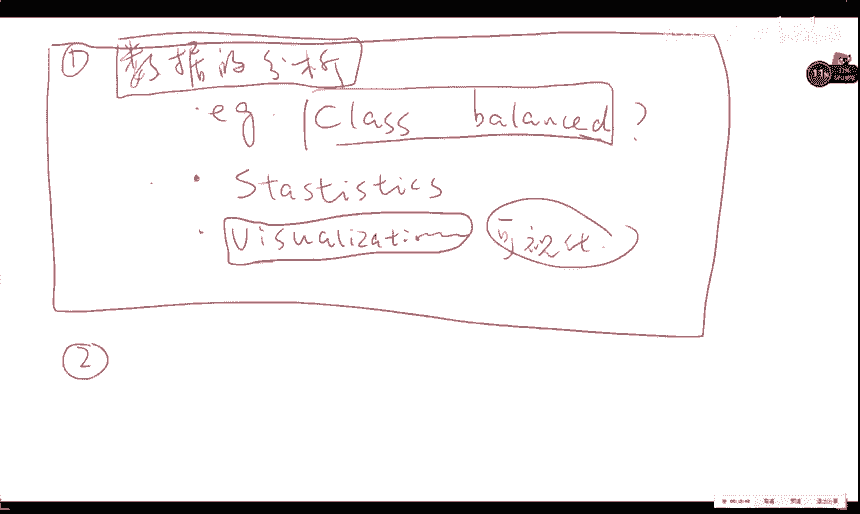 ① 数据的分析
· eg. Class balanced ?
· Stastistics
· Visualization 可视化
②